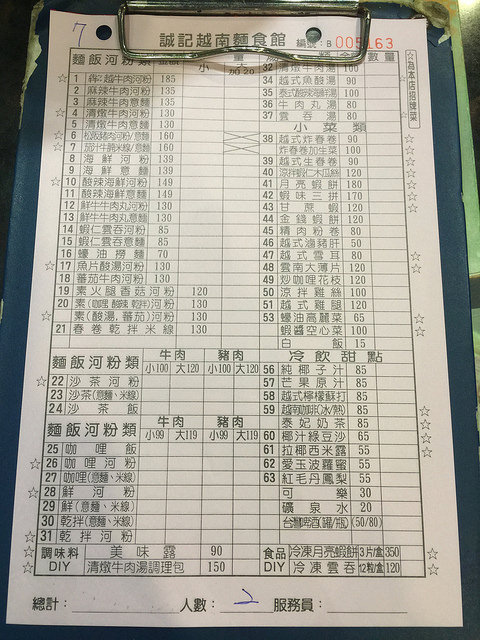 7
誠記越南麵食館 編號: B 005163
麵飯河粉類 小 大 加20 數量
☆為本店招牌菜
☆ 1 犇越牛肉河粉 185
2 麻辣牛肉河粉 135
3 麻辣牛肉意麵 135
4 清燉牛肉河粉 130
5 清燉牛肉意麵 130
160
160
8 海鮮河粉 139
9 海鮮意麵 139
☆ 10 酸辣海鮮河粉 149
11 酸辣海鮮意麵 149
12 鮮牛牛肉丸河粉 130
13 鮮牛牛肉丸意麵 130
14 蝦仁雲吞河粉 85
15 蝦仁雲吞意麵 85
16 蠔油撈麵 70
☆ 17 魚片酸湯河粉 130
18 蕃茄牛肉河粉 130
19 素火腿香菇河粉 120
20 素(咖哩 酸辣 乾拌)河粉 130
素(酸湯,蕃茄)河粉 130
21 春卷乾拌米線 130
麵飯河粉類 牛肉 豬肉
小100 大120 小100 大120
☆ 22 沙茶河粉
23 沙茶(意麵、米線)
☆ 24 沙茶飯
麵飯河粉類 牛肉 豬肉
小99 大119 小99 大119
25 咖哩飯
☆ 26 咖哩河粉
27 咖哩(意麵、米線)
☆ 28 鮮河粉
29 鮮(意麵、米線)
30 乾拌(意麵、米線)
☆ 31 乾拌河粉
☆ 調味料 美味露 90
☆ DIY 清燉牛肉湯調理包 150
32 清燉牛肉湯 100
34 越式魚酸湯 90
35 泰式酸辣海鮮湯 100
36 牛肉丸湯 80
37 雲吞湯 80
小菜類
38 越式炸春卷 90
炸春卷加生菜 100
39 越式生春卷 90
40 涼拌蝦仁木瓜絲 120
41 月亮蝦餅 180
42 蝦味三拼 170
43 甘蔗蝦 120
44 金錢蝦餅 120
45 精肉粉卷 80
46 越式滷豬肝 50
47 越式雪耳 80
48 雲南大薄片 120
49 炒咖哩花枝 120
50 涼拌雞絲 100
51 越式雞腿 120
53 蠔油高麗菜 65
蝦醬空心菜 100
白飯 15
冷飲甜點
56 純椰子汁 85
57 芒果原汁 85
58 越式檸檬蘇打 85
59 越式咖啡(冰/熱) 85
泰妃奶茶 85
60 椰汁綠豆沙 65
61 拉椰西米露 55
62 愛玉波羅蜜 55
63 紅毛丹鳳梨 55
可樂 30
礦泉水 20
台灣啤酒(罐/瓶) (50/80)
食品 冷凍月亮蝦餅 3片/盒 350 ☆
DIY 冷凍雲吞 12粒/盒 120 ☆
總計: 人數: 2 服務員: